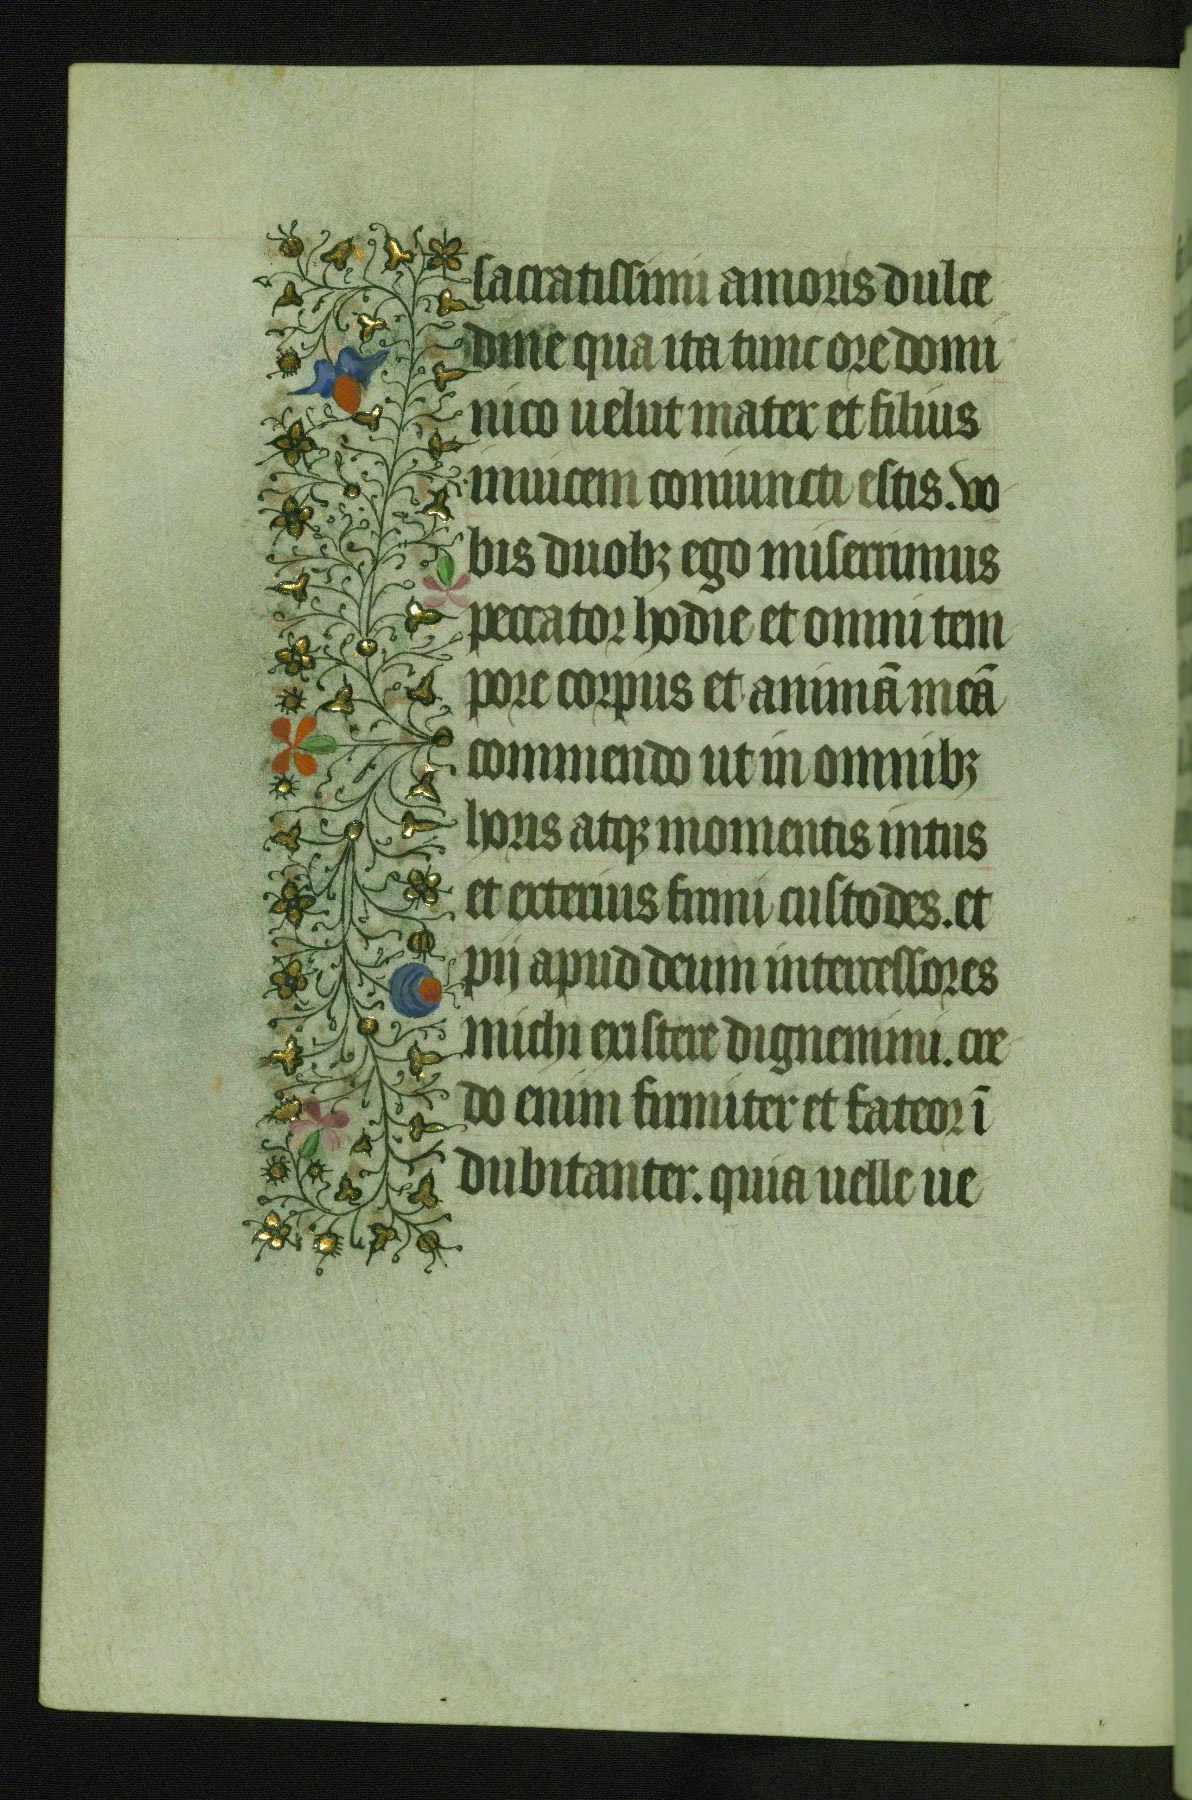 sacratissimi amoris dulce
dine qua ita tunc ore domi
nico uelut mater et filius
inuicem coniuncti estis. Vo
bis duobꝫ ego miserrimus
peccator hodie et omni tem
pore corpus et animā meā
commendo ut in omnibꝫ
horis atqꝫ momentis intus
et exterius firmi custodes. et
pij apud deum intercessores
michi existere dignemini. cre
do enim firmiter et fateor ī
dubitanter. quia uelle ue